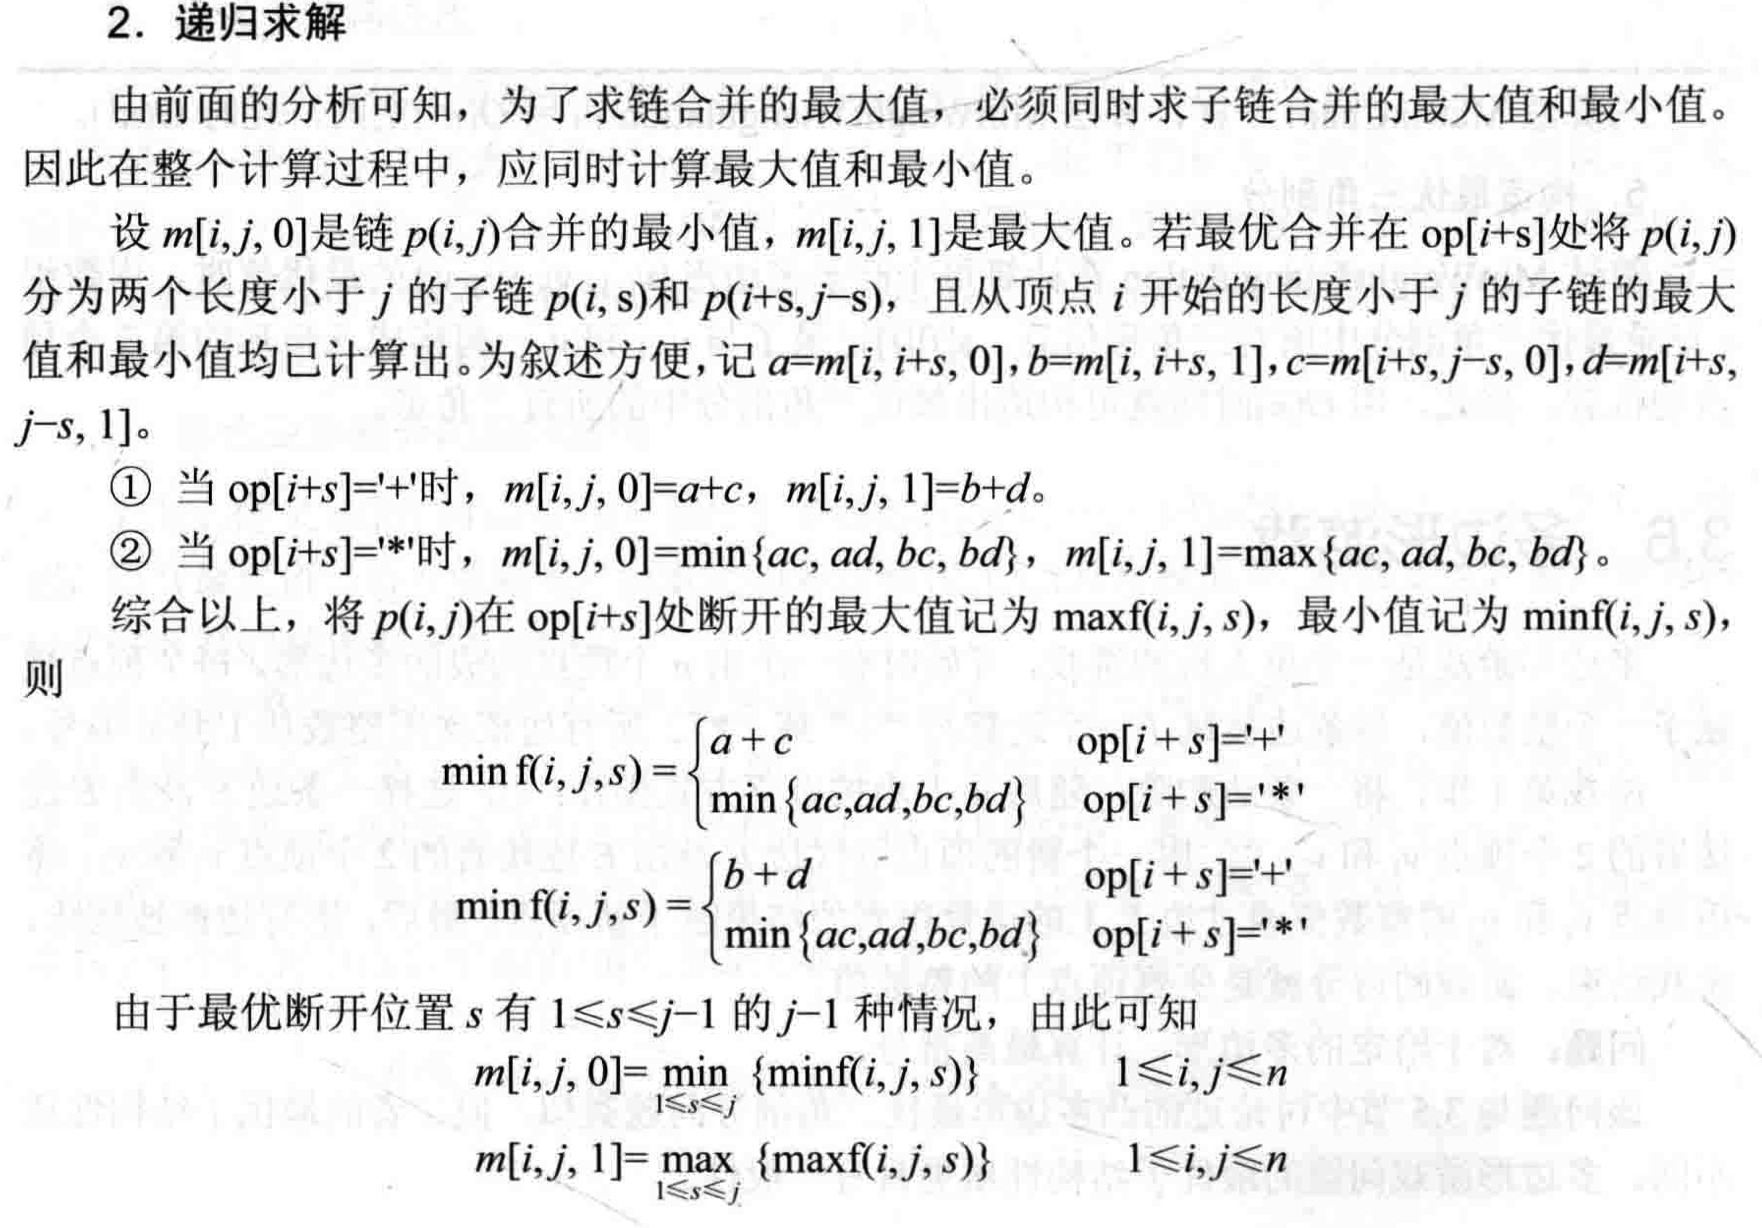 2. 递归求解
由前面的分析可知，为了求链合并的最大值，必须同时求子链合并的最大值和最小值。
因此在整个计算过程中，应同时计算最大值和最小值。
设 m[i, j, 0]是链 p(i, j)合并的最小值，m[i, j, 1]是最大值。若最优合并在 op[i+s]处将 p(i, j)
分为两个长度小于 j 的子链 p(i, s)和 p(i+s, j−s)，且从顶点 i 开始的长度小于 j 的子链的最大
值和最小值均已计算出。为叙述方便，记 a=m[i, i+s, 0]，b=m[i, i+s, 1]，c=m[i+s, j−s, 0]，d=m[i+s,
j−s, 1]。
① 当 op[i+s]='+'时，m[i, j, 0]=a+c，m[i, j, 1]=b+d。
② 当 op[i+s]='*'时，m[i, j, 0]=min{ac, ad, bc, bd}，m[i, j, 1]=max{ac, ad, bc, bd}。
综合以上，将 p(i, j)在 op[i+s]处断开的最大值记为 maxf(i, j, s)，最小值记为 minf(i, j, s)，
则
min f(i, j,s) = { a + c op[i + s]='+'
min{ac,ad,bc,bd} op[i + s]='*'
min f(i, j,s) = { b + d op[i + s]='+'
min{ac,ad,bc,bd} op[i + s]='*'
由于最优断开位置 s 有 1≤s≤j−1 的 j−1 种情况，由此可知
m[i, j, 0]= min {minf(i, j, s)} 1≤i, j≤n
1≤s≤j
m[i, j, 1]= max {maxf(i, j, s)} 1≤i, j≤n
1≤s≤j